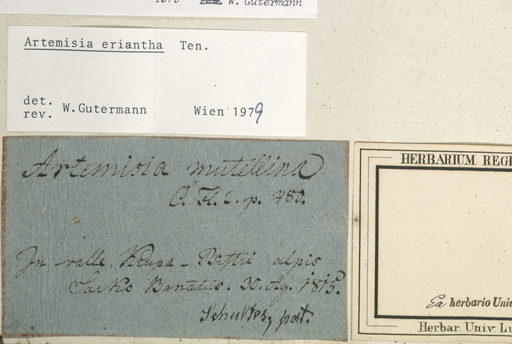 W. Gutermann
Artemisia eriantha Ten.
det.
rev. W.Gutermann Wien 1979
Artemisia mutellina
Ö. Fl. 2. p. 480.
In valle Krupa - Bistri alpis
Sarko Banatus. 30. Ag. 1815.
Schultes, pat.
HERBARIUM REGI
Ex herbario Univ
Herbar. Univ. Lu